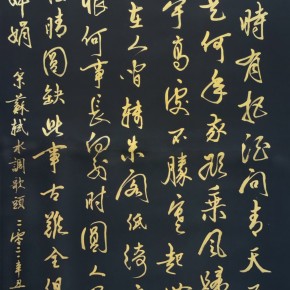 時有把酒問青天不
是何年我欲乘風歸
宇高處不勝寒起舞
在人間轉朱閣低綺户
恨何事長向别時圓人
陰晴圓缺此事古難全但
嬋娟 宋蘇軾水調歌頭 二零二